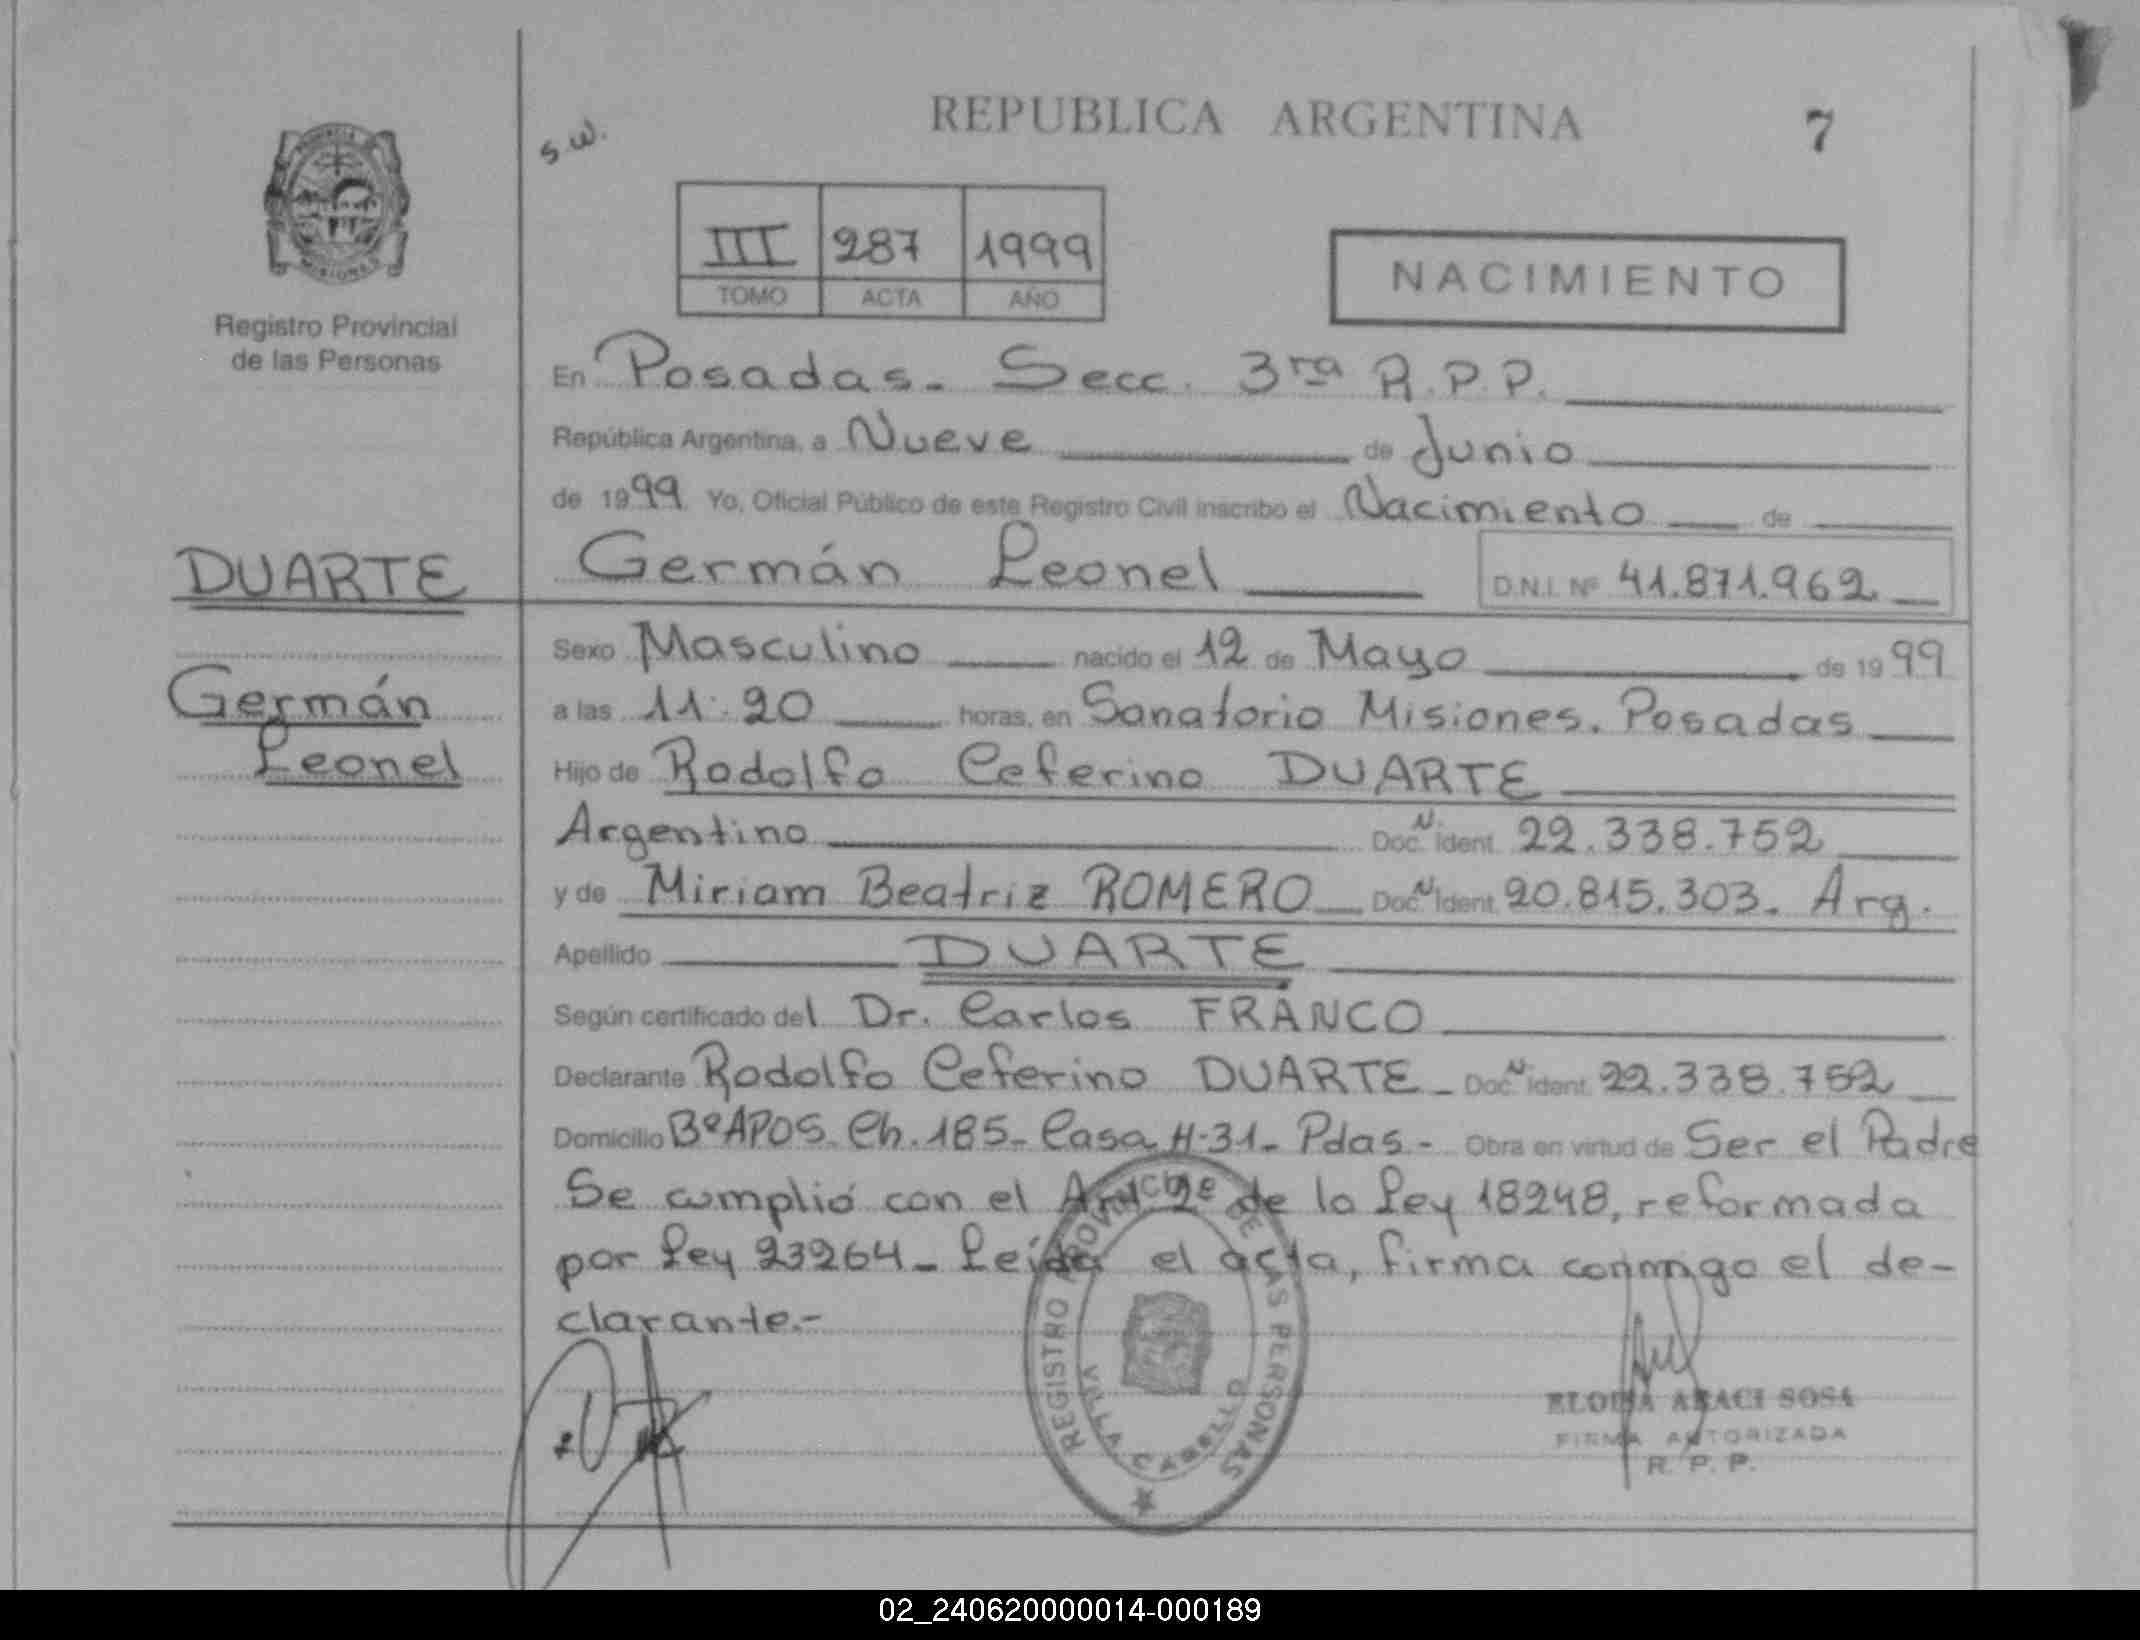 REPUBLICA ARGENTINA
7
s.w.
III 287 1999
TOMO ACTA AÑO
NACIMIENTO
PROVINCIA
MISIONES
Registro Provincial
de las Personas
En Posadas. Secc. 3ra R.P.P.
República Argentina, a Nueve de Junio
de 1999 Yo, Oficial Público de este Registro Civil inscribo el Nacimiento de
DUARTE
Germán Leonel D.N.I. Nº 41.871.962
Germán
Leonel
Sexo Masculino nacido el 12 de Mayo de 1999
a las 11:20 horas, en Sanatorio Misiones. Posadas
Hijo de Rodolfo Ceferino DUARTE
Argentino Doc. N. Ident. 22.338.752
y de Miriam Beatriz ROMERO Doc. N Ident. 20.815.303. Arg.
Apellido DUARTE
Según certificado del Dr. Carlos FRANCO
Declarante Rodolfo Ceferino DUARTE - Doc. N Ident. 22.338.752
Domicilio BºAPOS. Ch. 185- Casa H-31- Pdas.- Obra en virtud de Ser el Padre
Se cumplió con el Art 2º de la Ley 18248, reformada
por Ley 23264- Leída el acta, firma conmigo el de-
clarante.-
REGISTRO PROVINCIAL DE LAS PERSONAS
VILLA CABELLO
ELODIA ARACI SOSA
FIRMA AUTORIZADA
R. P. P.
02_240620000014-000189